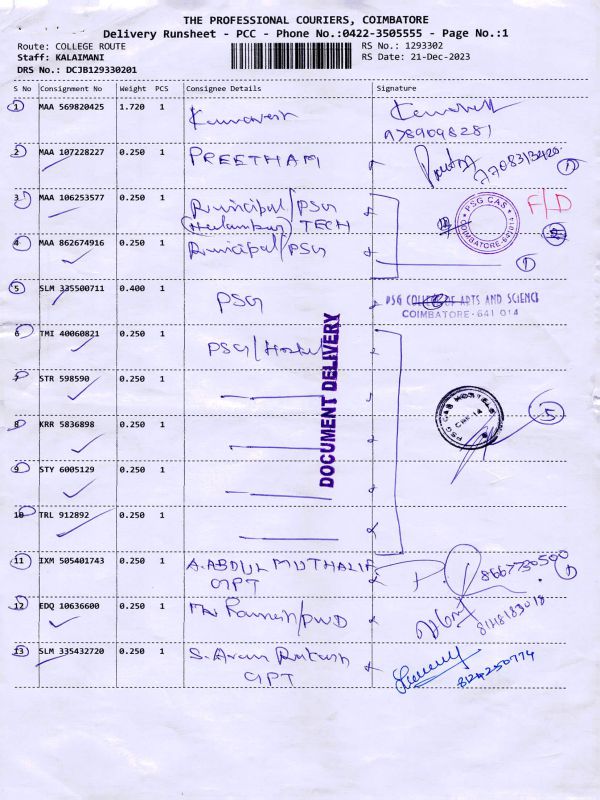 THE PROFESSIONAL COURIERS, COIMBATORE
Delivery Runsheet - PCC - Phone No.:0422-3505555 - Page No.:1
Route: COLLEGE ROUTE
RS No.: 1293302
Staff: KALAIMANI
RS Date: 21-Dec-2023
DRS No.: DCJB129330201
S No Consignment No Weight PCS Consignee Details Signature
1 MAA 569820425 1.720 1
9789098281
2 MAA 107228227 0.250 1 PREETHAM
7708313420 1
3 MAA 106253577 0.250 1 Principal/PSG
TECH
PSG CAS
COIMBATORE-641014
F/D
4 MAA 862674916 0.250 1 Principal/PSG
2
1
5 SLM 335500711 0.400 1 PSG
PSG COLLEGE OF ARTS AND SCIENCE
COIMBATORE-641 014
6 TMI 40060821 0.250 1 PSG/Hostel
DOCUMENT DELIVERY
7 STR 598590 0.250 1
PSG CAS HOSTELS
CBE-14
5
8 KRR 5836898 0.250 1
9 STY 6005129 0.250 1
10 TRL 912892 0.250 1
11 IXM 505401743 0.250 1 A. ABDUL MUTHALIF
GPT
8667730590 1
12 EDQ 10636600 0.250 1
8148183018
13 SLM 335432720 0.250 1 S. Arun
GPT
8124250774